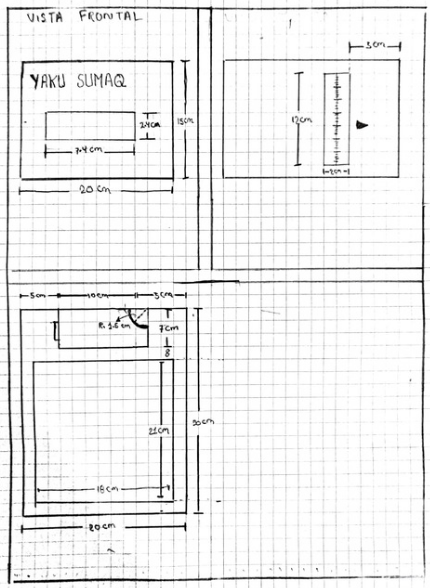 VISTA FRONTAL
YAKU SUMAQ
7.4 cm
20 cm
3cm
12cm
2cm
5cm
10cm
3cm
7cm
8
21cm
30cm
18cm
20cm